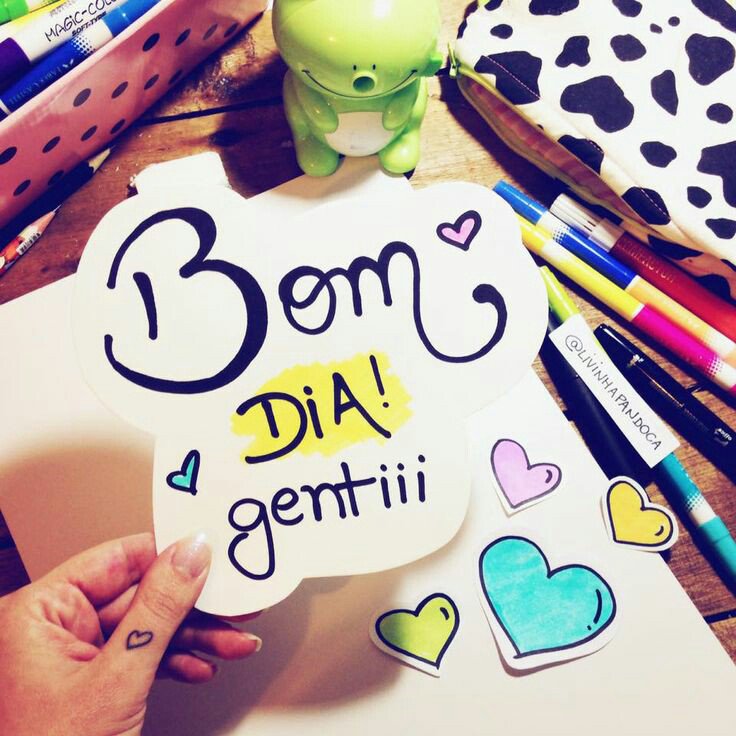 MAGIC-COLOR
SOFT-TYPE
Bom
DiA!
gentiii
@LIVINHAPANDOCA